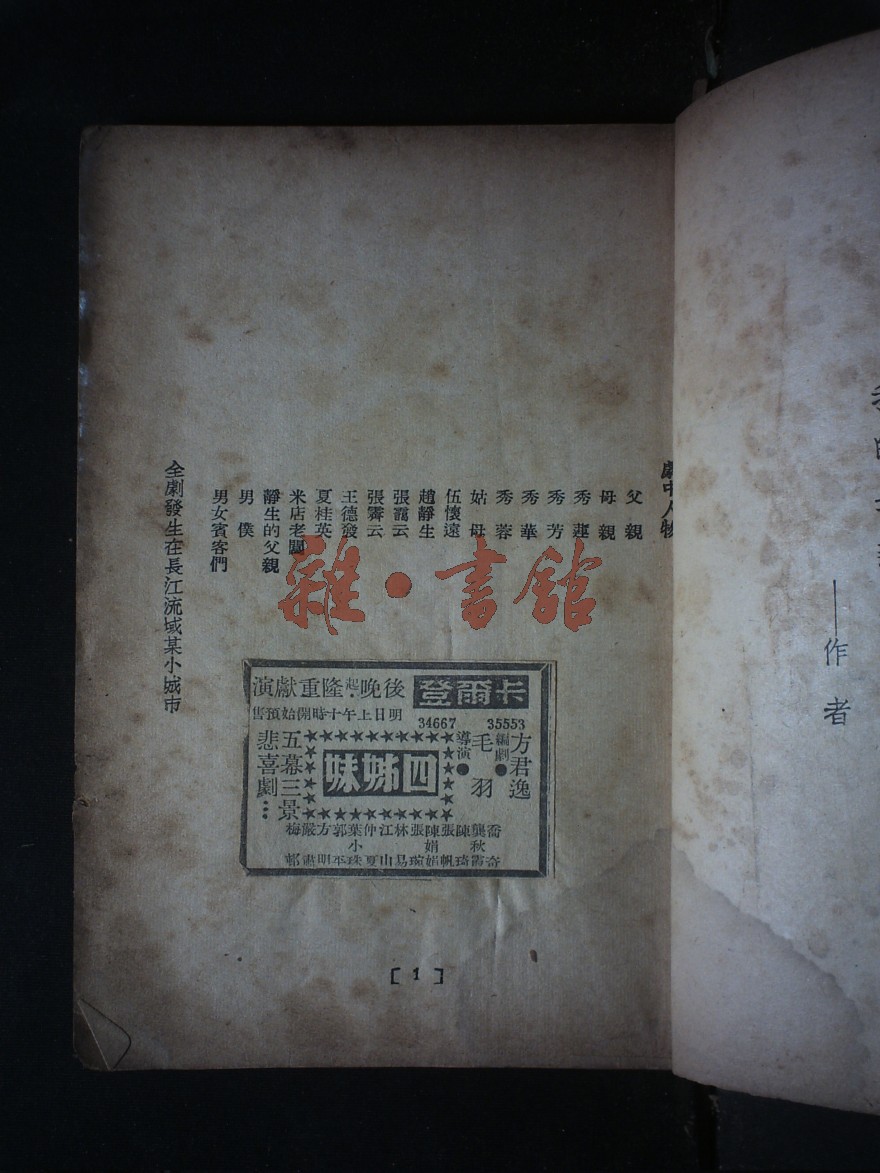 ——作者
劇中人物
父親
母親
秀蓮
秀芳
秀華
秀蓉
姑母
伍懷遠
趙靜生
張靄云
張霽云
王德發
夏桂英
米店老闆
靜生的父親
男僕
男女賓客們
全劇發生在長江流域某小城市
雜·書館
卡爾登
後晚起·隆重獻演
明日上午十時開始預售
35553
34667
方君逸
編劇●
毛羽
導演●
四姊妹
五幕三景
悲喜劇
喬奇
龔秋霞
陳琦
張帆
陳娟娟
張琬
林易
江山
仲夏
葉小珠
郭平
方明
嚴肅
梅邨
[ 1 ]